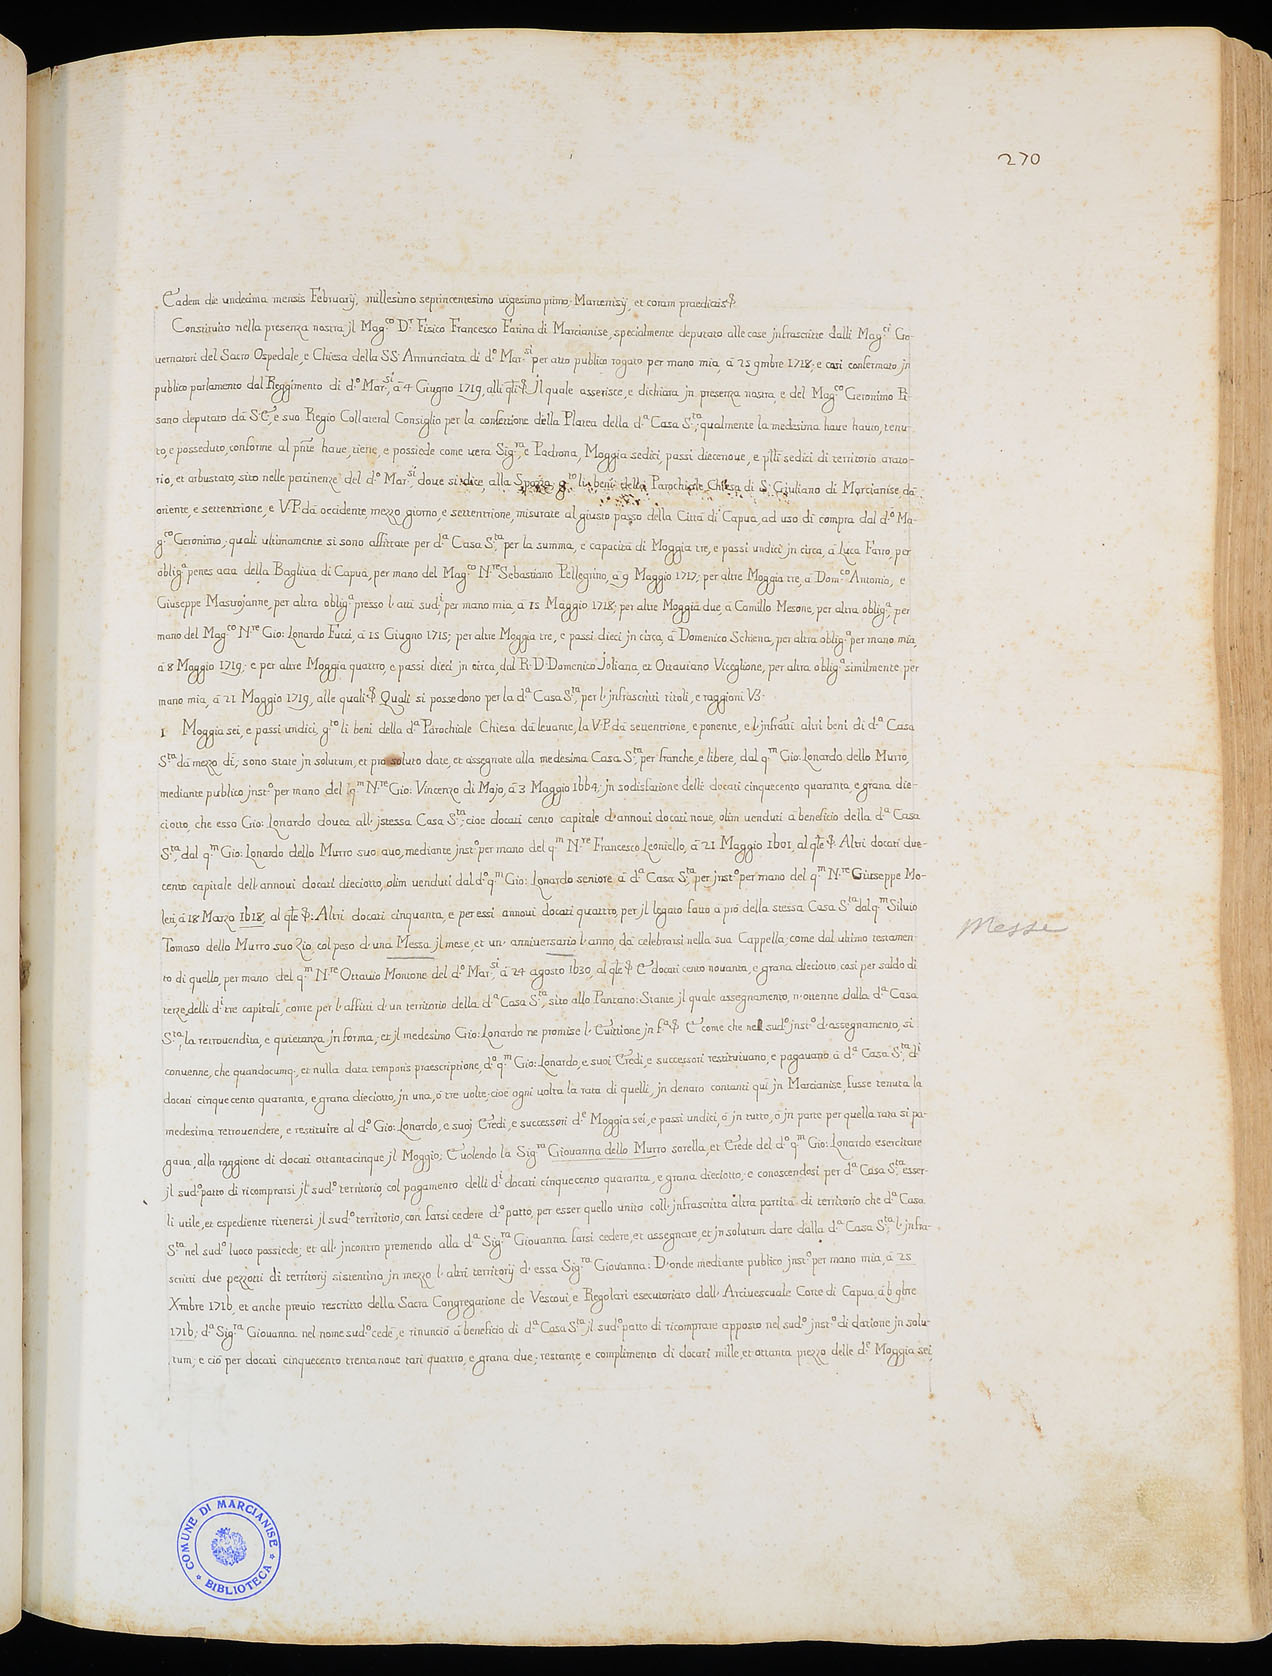 270
Eadem die undecima mensis Februarij, millesimo septincentesimo vigesimo primo. Marcenisij, et coram praedictis &.
Constituito nella presenza nostra jl Mag.co D.r Fisico Francesco Farina di Marcianise, specialmente deputato alle cose jnfrascritte dalli Mag.ci Go-
uernatori del Sacro Ospedale, e Chiesa della SS. Annunciata di d.o Mar.si per atto publico rogato per mano mia à 25 9mbre 1718; e così confermato jn
publico parlamento dal Reggimento di d.o Mar.si, à 4 Giugno 1719, alli qli &. Jl quale asserisce, e dichiara jn presenza nostra, e del Mag.co Geronimo Pi-
sano deputato dà S.E, e suo Regio Collateral Consiglio per la confettione della Platea della d.a Casa S.ta; qualmente la medesima haue hauto, tenu-
to, e posseduto, conforme al pnte haue, tiene, e possiede come uera Sig.ra, e Padrona, Moggia sedici, passi diecenoue, e plli sedici di territorio arato-
rio, et arbustato, sito nelle pertinenze del d.o Mar.si, doue si dice, alla Spozzo, g.to li beni della Parochiale Chiesa di S. Giuliano di Marcianise, dà
oriente, e settentrione, e V.P. dà occidente, mezzo giorno, e settentrione, misurate al giusto passo della Città di Capua, ad uso di compra dal d.o Ma-
g.co Geronimo; quali ultimamente si sono affittate per d.a Casa S.ta per la summa, e capacità di Moggia tre, e passi undici jn circa, à Luca Farro, per
oblig.a penes acta della Bagliua di Capua, per mano del Mag.co N.re Sebastiano Pellegrino, à 9 Maggio 1717; per altre Moggia tre, à Dom.co Antonio, e
Giuseppe Mastrojanne, per altra oblig.a presso l'atti sud.i per mano mia, à 15 Maggio 1718; per altre Moggia due, à Camillo Mesone, per altra oblig.a per
mano del Mag.co N.re Gio: Lonardo Fucci, à 15 Giugno 1715; per altre Moggia tre, e passi dieci jn circa, à Domenico Schiena, per altra oblig.a per mano mia,
à 8 Maggio 1719; e per altre Moggia quattro, e passi dieci jn circa, dal R. D. Domenico Joliana, et Ottauiano Viceglione, per altra oblig.a similmente per
mano mia, à 21 Maggio 1719, alle quali &. Quali si possedono per la d.a Casa S.ta per l'jnfrascritti titoli, e raggioni V3.
1 Moggia sei, e passi undici, g.to li beni della d.a Parochiale Chiesa dà leuante, la V.P. dà settentrione, e ponente, e l'jnfratti altri beni di d.a Casa
S.ta dà mezzo dì; sono state jn solutum, et pro soluto date, et assegnate alla medesima Casa S.ta, per franche, e libere, dal q.m Gio: Lonardo dello Murro,
mediante publico jnst.o per mano del q.m N.re Gio: Vincenzo di Majo, à 3 Maggio 1664; jn sodisfazione delli docati cinquecento quaranta, e grana die-
ciotto, che esso Gio: Lonardo douea all'jstessa Casa S.ta; cioè docati cento capitale d'annoui docati noue, olim uenduti à beneficio della d.a Casa
S.ta, dal q.m Gio: Lonardo dello Murro suo auo, mediante jnst.o per mano del q.m N.re Francesco Leoniello, à 21 Maggio 1601, al qle &. Altri docati due-
cento capitale dell'annoui docati dieciotto, olim uenduti dal d.o q.m Gio: Lonardo seniore à d.a Casa S.ta per jnst.o per mano del q.m N.re Giuseppe Mo-
leti, à 18 Marzo 1618, al qle &: Altri docati cinquanta, e per essi annoui docati quattro, per jl legato fatto à prò della stessa Casa S.ta dal q.m Siluio
Tomaso dello Murro suo zio, col peso d'una Messa jl mese, et un'anniuersario l'anno, dà celebrarsi nella sua Cappella; come dal ultimo testamen-
Messe
to di quello, per mano del q.m N.re Ottauio Montone del d.o Mar.si à 24 agosto 1630, al qle & E docati cento nouanta, e grana dieciotto, così per saldo di
terze, delli d.i tre capitali, come per l'affitti d'un territorio della d.a Casa S.ta, sito allo Pantano: Stante jl quale assegnamento, n'ottenne dalla d.a Casa
S.ta, la retrouendita, e quietanza jn forma; et jl medesimo Gio: Lonardo ne promise l'Euittione jn f.a & E come che nel sud.o jnst.o d'assegnamento, si
conuenne, che quandocumq., et nulla data temporis praescriptione, d.o q.m Gio: Lonardo, e suoi Eredi, e successori restituiuano, e pagauano à d.a Casa S.ta, d.i
docati cinquecento quaranta, e grana dieciotto, jn una, ò tre uolte; cioè ogni uolta la rata di quelli, jn denaro contanti quì jn Marcianise, fusse tenuta la
medesima retrouendere, e restituire al d.o Gio: Lonardo, e suoj Eredi, e successori d.e Moggia sei, e passi undici, ò jn tutto, ò jn parte per quella rata si pa-
gaua, alla raggione di docati ottantacinque jl Moggio; E uolendo la Sig.ra Giouanna dello Murro sorella, et Erede del d.o q.m Gio: Lonardo esercitare
jl sud.o patto di ricomprarsi jl sud.o territorio, col pagamento delli d.i docati cinquecento quaranta, e grana dieciotto; e conoscendosi per d.a Casa S.ta esser-
li utile, et espediente ritenersi jl sud.o territorio, con farsi cedere d.o patto, per esser quello unito coll'jnfrascritta altra partita di territorio che d.a Casa
S.ta nel sud.o luoco possiede; et all'jncontro premendo alla d.a Sig.ra Giouanna farsi cedere, et assegnare, et jn solutum dare dalla d.a Casa S.ta, l'jnfra-
scritti due pezzotti di territorij sistentino jn mezzo l'altri territorij d'essa Sig.ra Giouanna: D'onde mediante publico jnst.o per mano mia, à 25
Xmbre 1716, et anche preuio rescritto della Sacra Congregatione de Vescoui, e Regolari esecutoriato dall'Arciuescouale Corte di Capua à 6 9bre
1716; d.a Sig.ra Giouanna nel nome sud.o cedè, e rinunciò à beneficio di d.a Casa S.ta jl sud.o patto di ricomprare apposto nel sud.o jnst.o di datione jn solu-
tum; e ciò per docati cinquecento trentanoue tarì quattro, e grana due; restante, e complimento di docati mille, et ottanta prezzo delle d.e Moggia sei,
COMUNE DI MARCIANISE
* BIBLIOTECA *